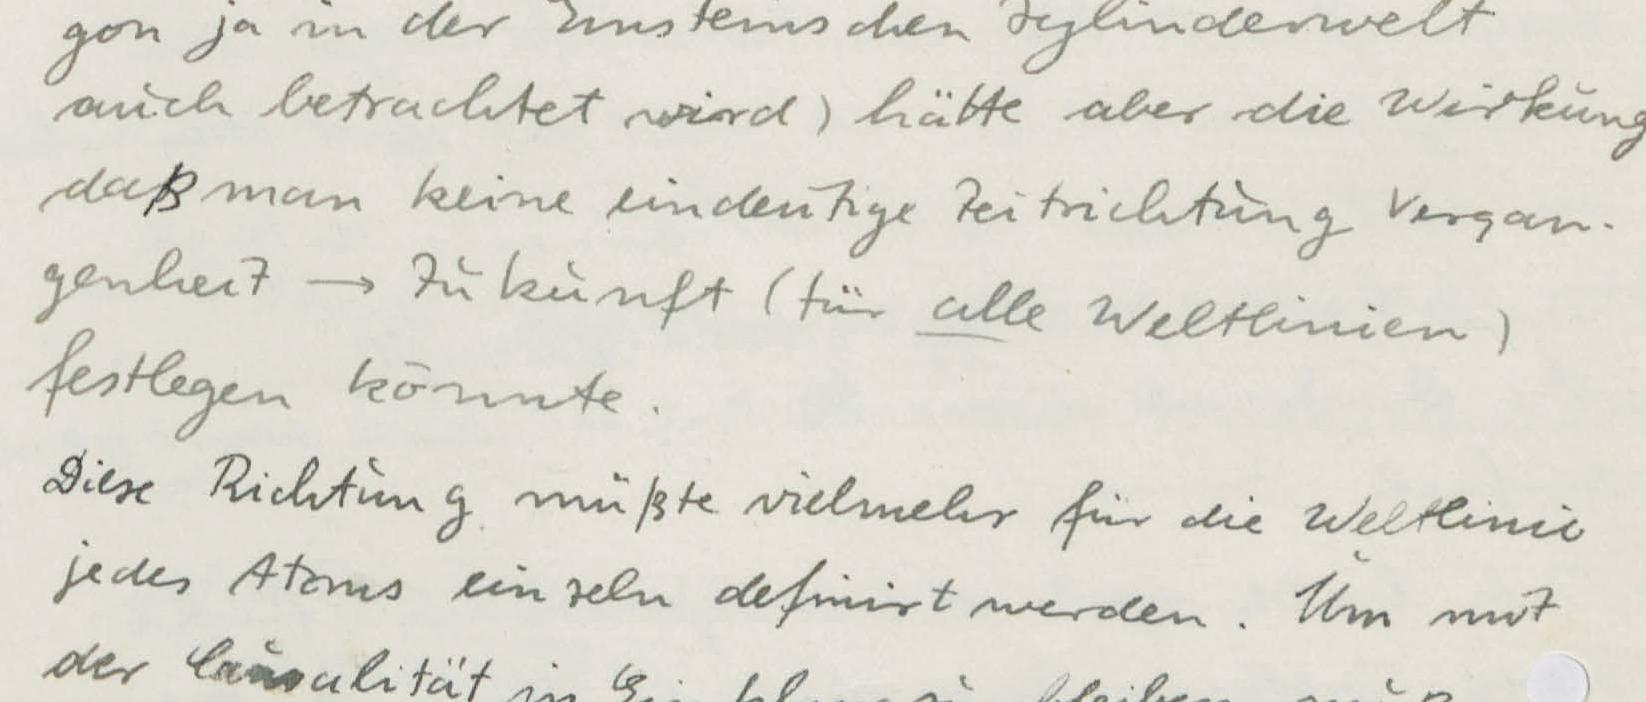 gon ja in der Einsteinschen Zylinderwelt
auch betrachtet wird) hätte aber die Wirkung
daß man keine eindeutige Zeitrichtung Vergan-
genheit → Zukunft (für alle Weltlinien)
festlegen könnte.
Diese Richtung müßte vielmehr für die Weltlinie
jedes Atoms einzeln definirt werden. Um mit
der Causalität in Einklang zu bleiben muß